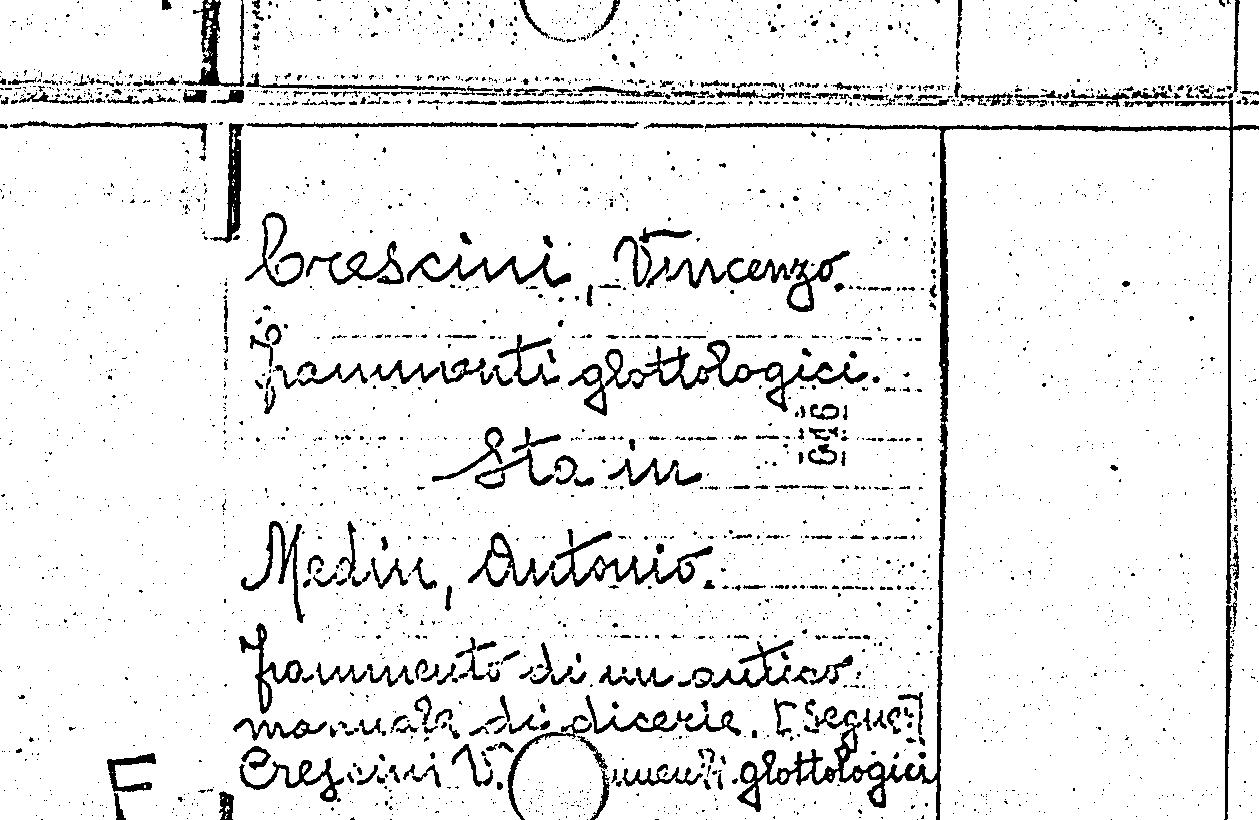 Crescini, Vincenzo.
Frammenti glottologici.
Sta in
Medin, Antonio.
Frammento di un antico
manuale di dicerie. [Segue:]
Crescini V. glottologici
F